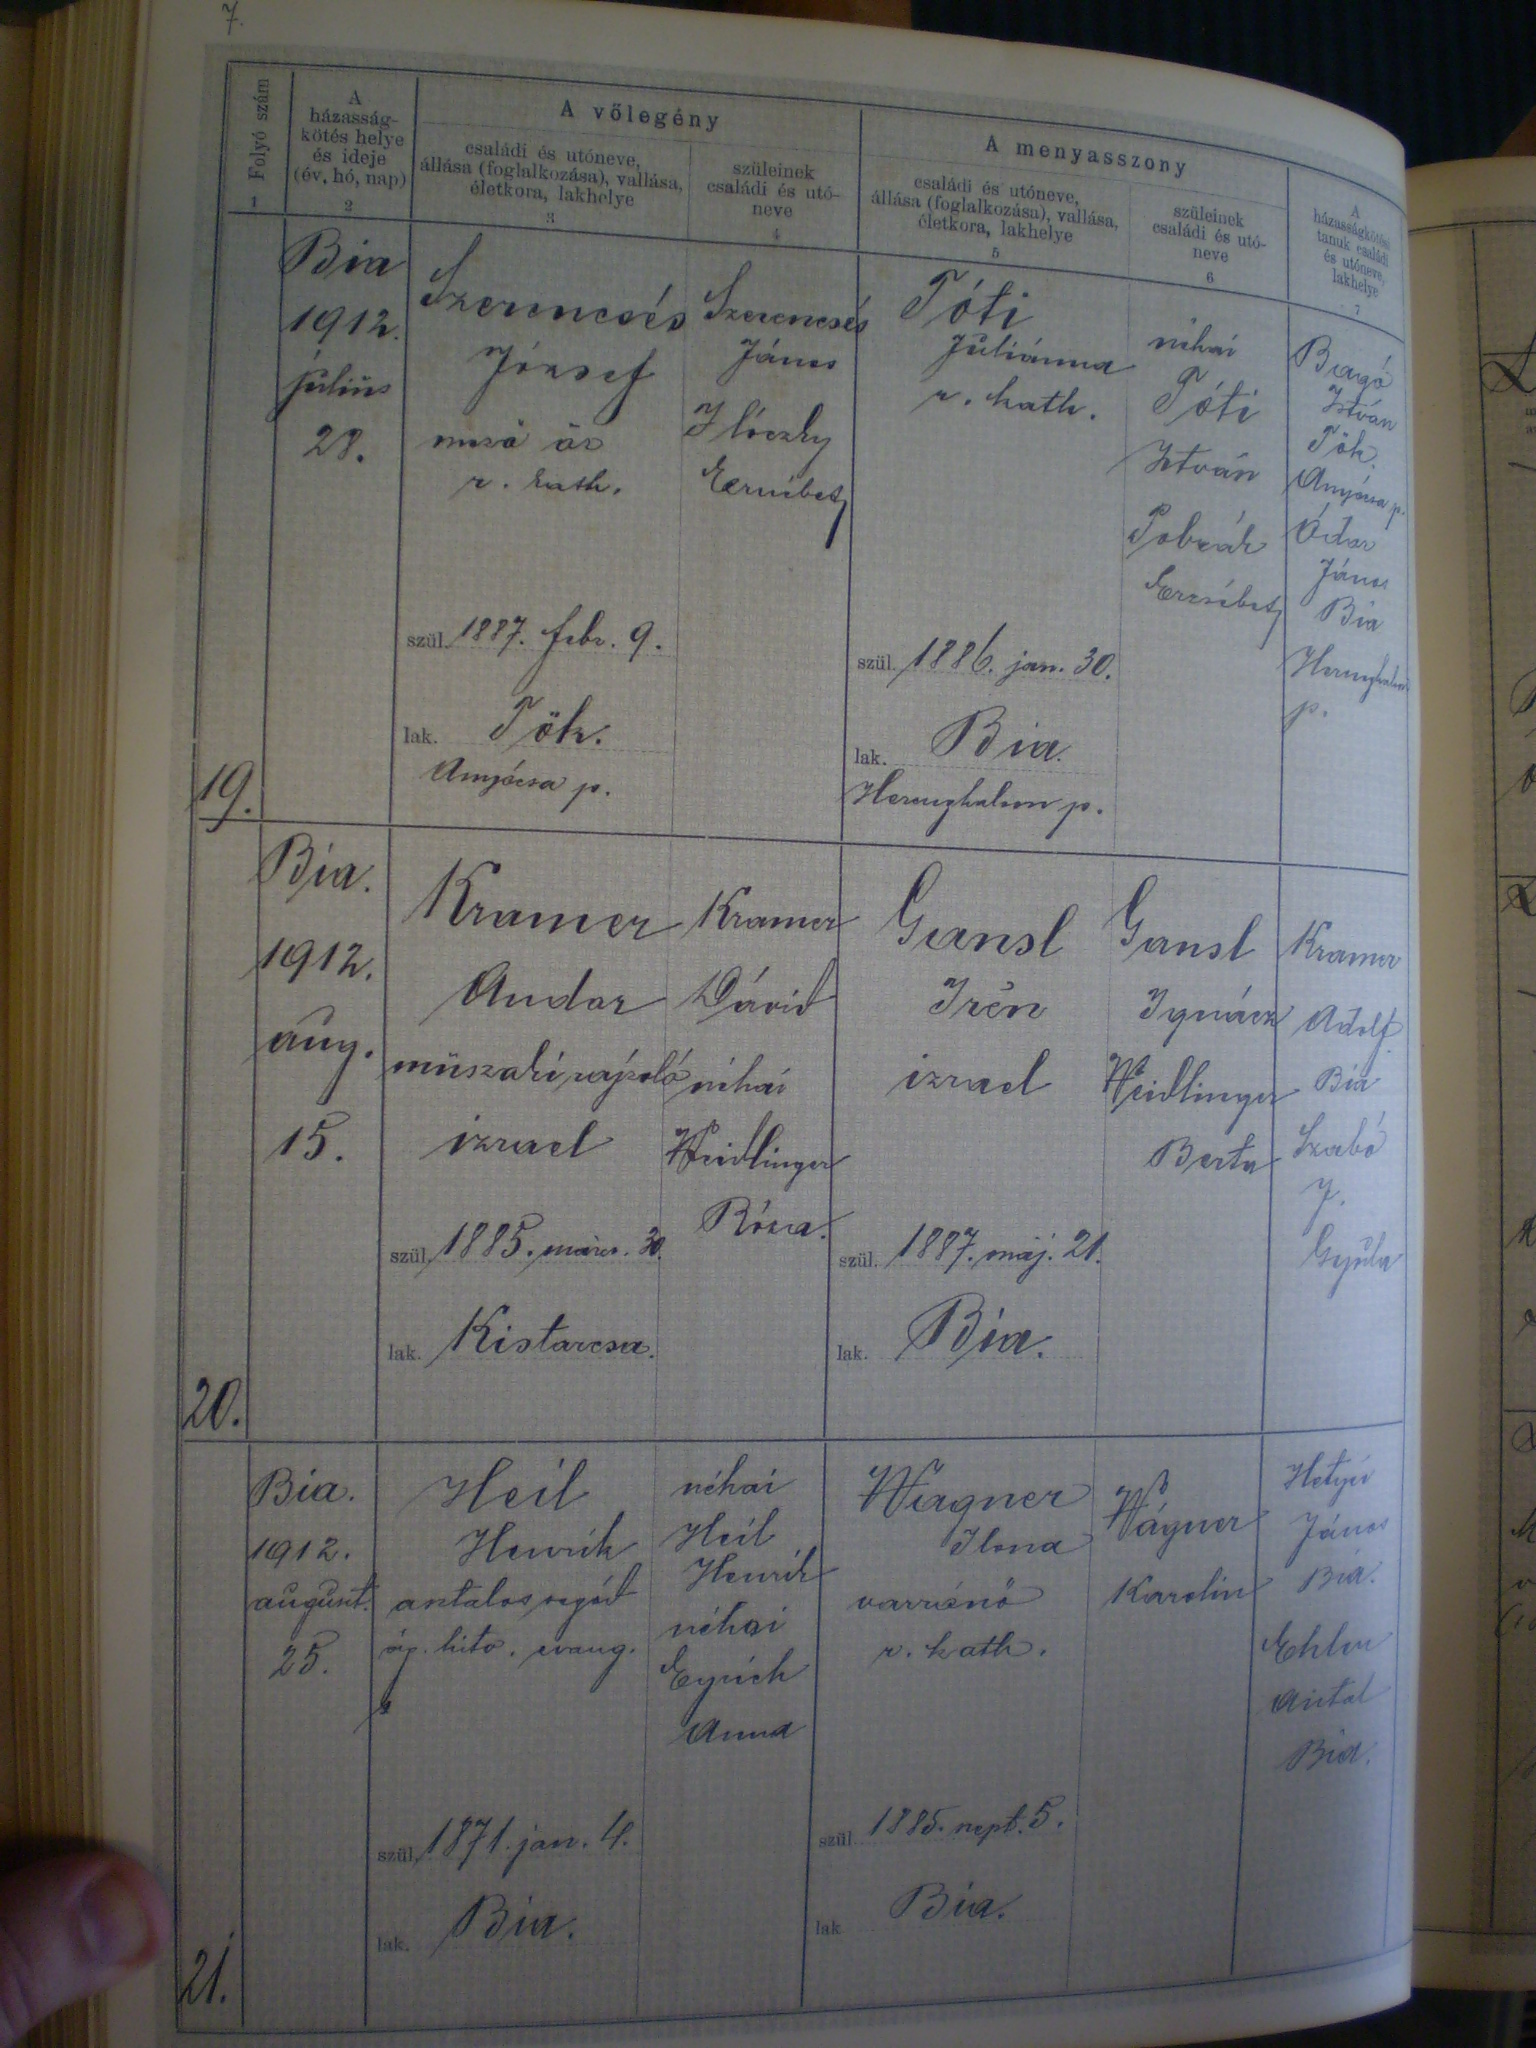 7.
Folyó szám
A
házasság-
kötés helye
és ideje
(év, hó, nap)
A vőlegény
családi és utóneve,
állása (foglalkozása), vallása,
életkora, lakhelye
szüleinek
családi és utó-
neve
A menyasszony
családi és utóneve,
állása (foglalkozása), vallása,
életkora, lakhelye
szüleinek
családi és utó-
neve
A
házasságkötési
tanuk családi
és utóneve,
lakhelye
1
2
3
4
5
6
7
19.
Bia
1912.
július
28.
Szerencsés
József
mező őr
r. kath.
szül. 1887. febr. 9.
lak. Tök.
Anyácsa p.
Szerencsés
János
Ilóczky
Erzsébet
Tóti
Juliánna
r. kath.
szül. 1886. jan. 30.
lak. Bia.
Herceghalom p.
néhai
Tóti
István
Erzsébet
Bagó
István
Tök.
Anyácsa p.
János
Bia
Herceghalom
p.
20.
Bia.
1912.
aug.
15.
Kramer
Andor
műszaki rajzoló
izrael
szül. 1885. márcz. 30.
lak. Kistarcsa.
Kramer
Dávid
néhai
Weidlinger
Róza.
Gansl
Irén
izrael
szül. 1887. máj. 21.
lak. Bia.
Gansl
Ignácz
Weidlinger
Berta
Kramer
Adolf
Bia
Szabó
J.
Gyula
21.
Bia.
1912.
august.
25.
Heil
Henrik
asztalos segéd
ág. hitv. evang.
szül. 1871. jan. 4.
lak. Bia.
néhai
Heil
Henrik
néhai
Eyrich
Anna
Wagner
Ilona
varrónő
r. kath.
szül. 1885. szept. 5.
lak Bia.
Wágner
Karolin
Hetyei
János
Bia.
Antal
Bia.